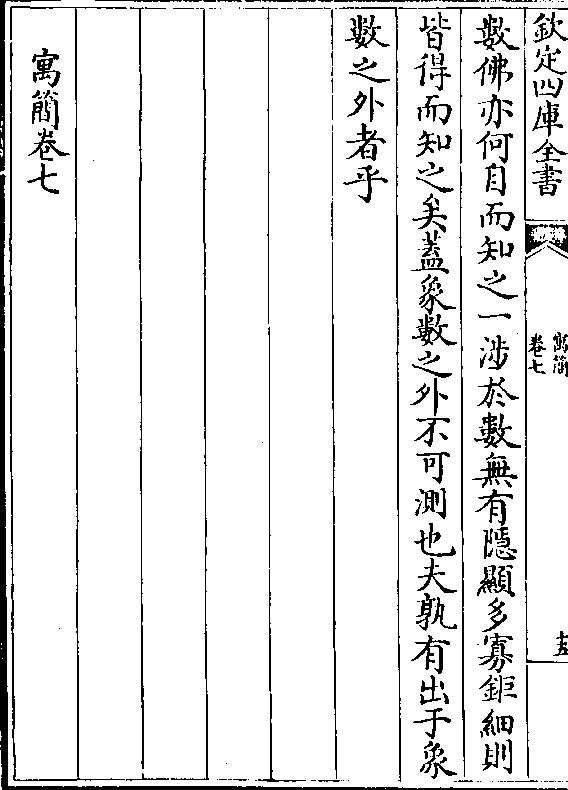 欽定四庫全書
寓簡
卷七
十五
數佛亦何自而知之一涉於數無有隱顯多寡鉅細則
皆得而知之矣蓋象數之外不可測也夫孰有出于象
數之外者乎
寓簡卷七